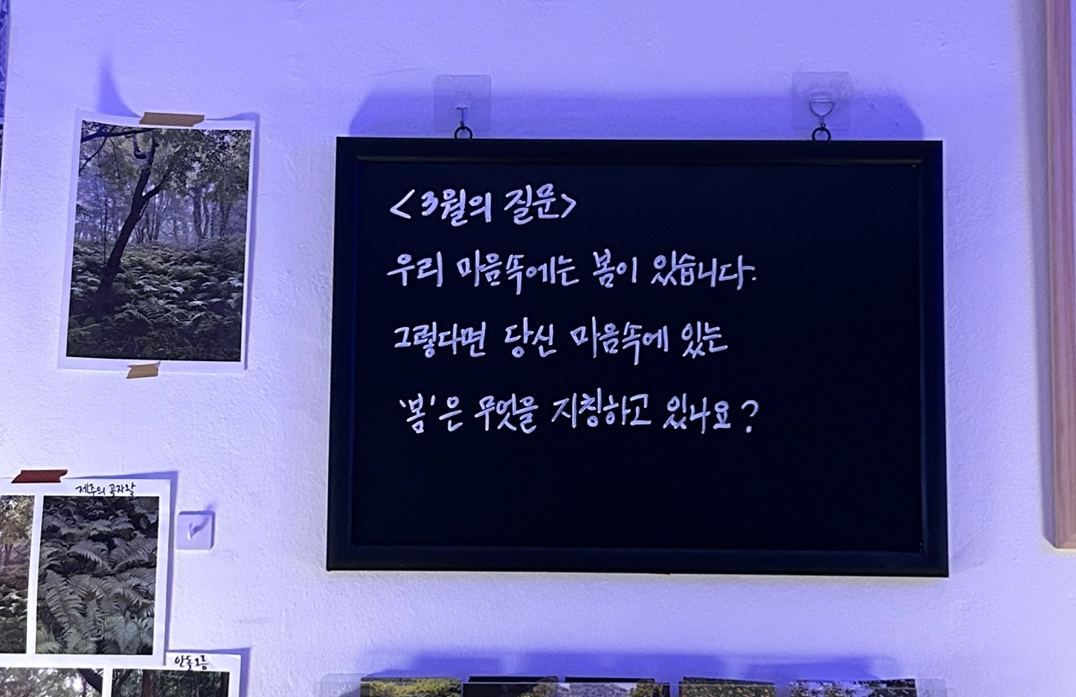 <3월의 질문>
우리 마음속에는 봄이 있습니다.
그렇다면 당신 마음속에 있는
'봄'은 무엇을 지칭하고 있나요?
제주의 곶자왈
안돌오름